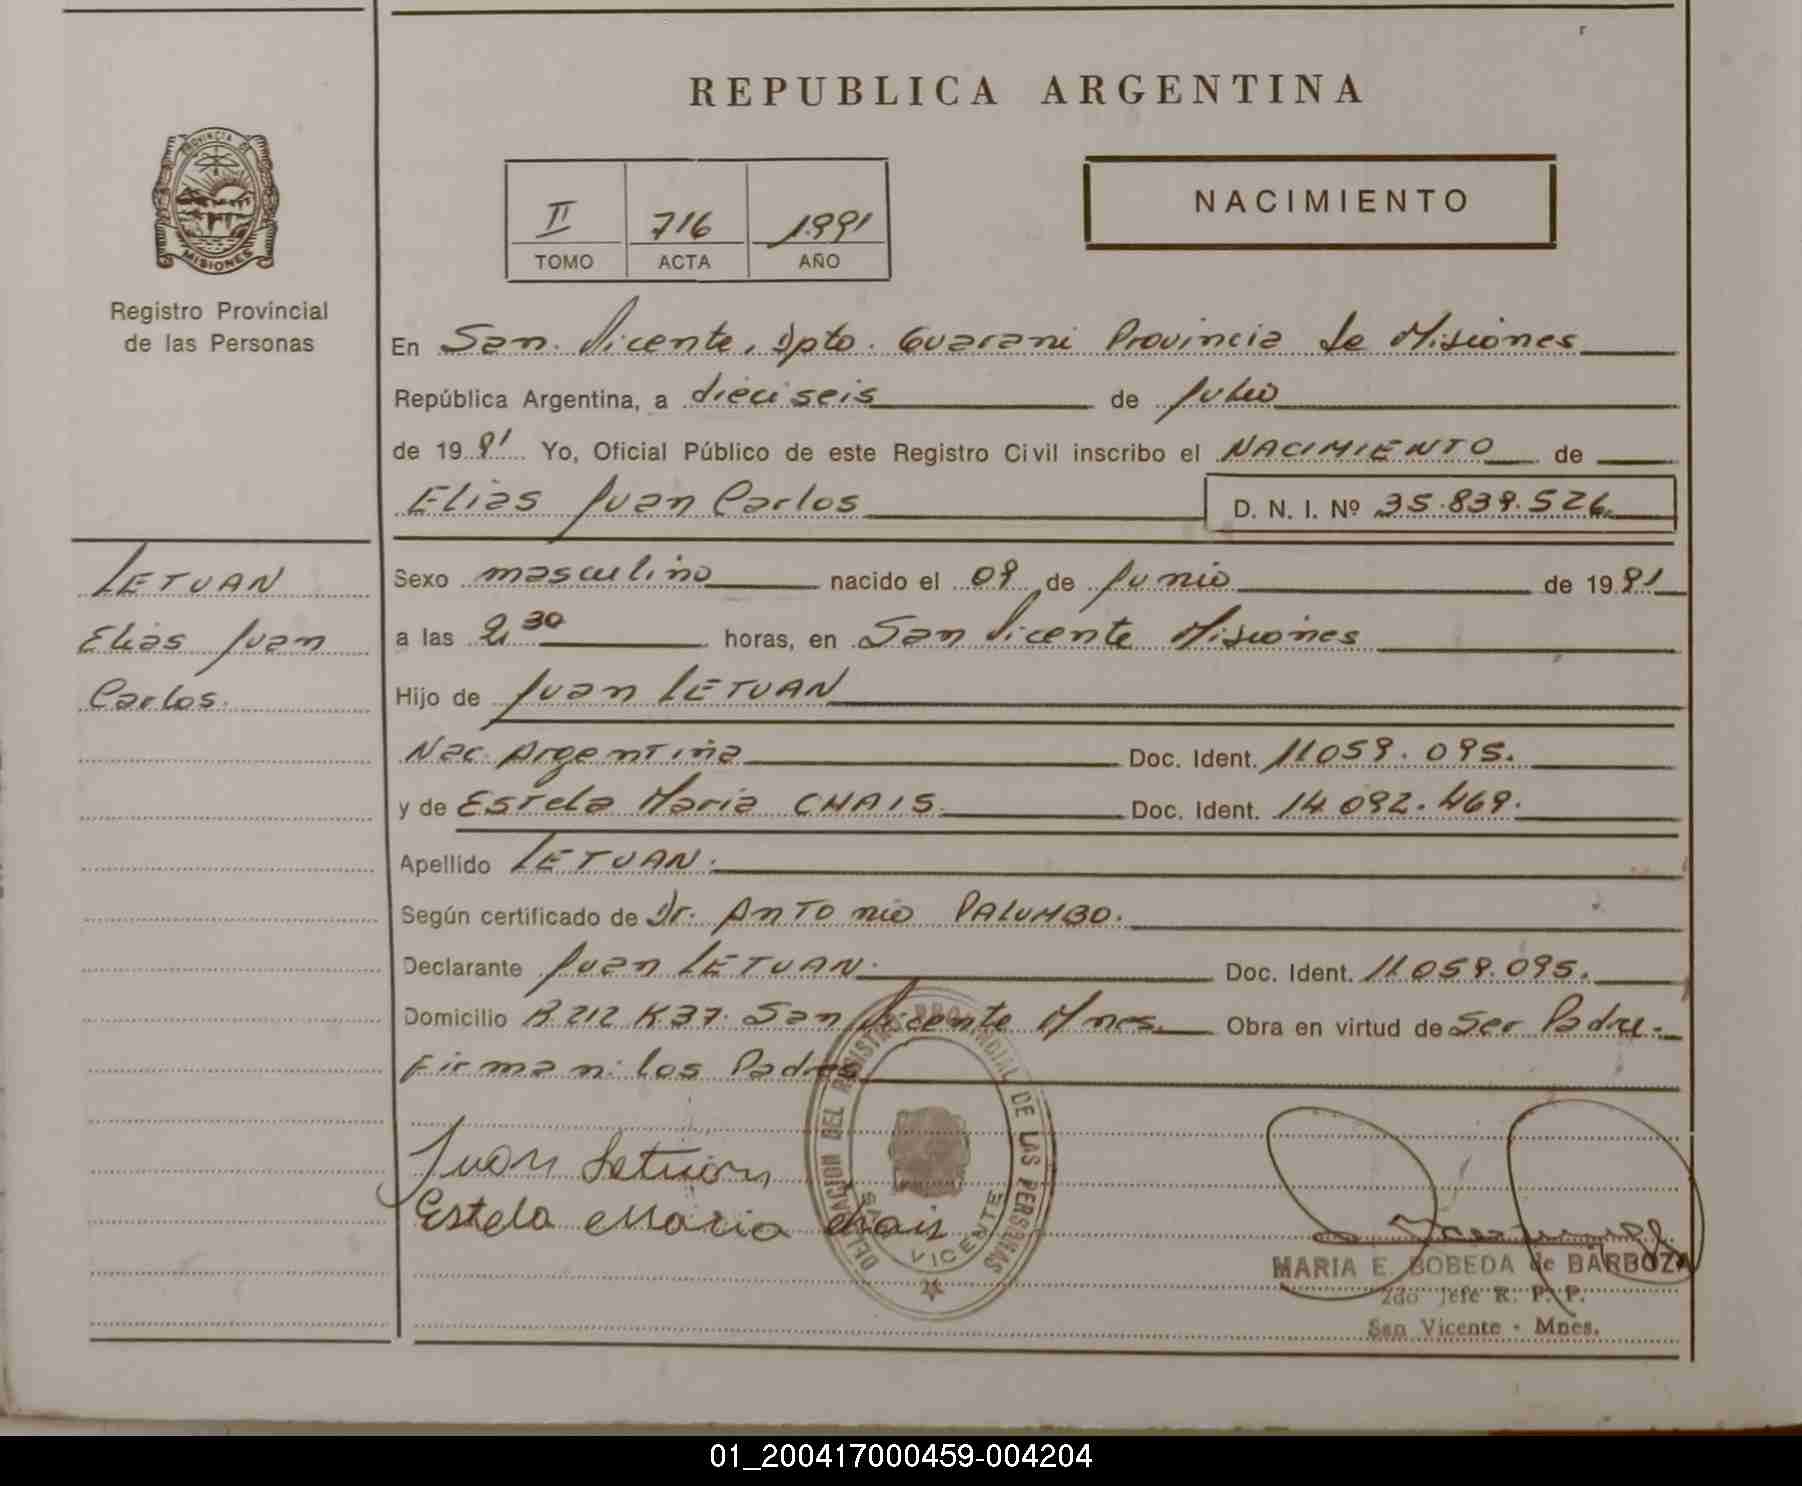 REPUBLICA ARGENTINA
PROVINCIA DE
MISIONES
Registro Provincial
de las Personas
II 716 1991
TOMO ACTA AÑO
NACIMIENTO
En San Vicente, Dpto. Guarani Provincia de Misiones
República Argentina, a dieciseis de Julio
de 1991 Yo, Oficial Público de este Registro Civil inscribo el NACIMIENTO de
Elias Juan Carlos D. N. I. Nº 35.839.526
LETUAN
Elias Juan
Carlos.
Sexo masculino nacido el 09 de Junio de 1991
a las 2,30 horas, en San Vicente Misiones
Hijo de Juan LETUAN
Nac. Argentina Doc. Ident. 11.059.095.
y de Estela Maria CHAIS. Doc. Ident. 14.092.469.
Apellido LETUAN.
Según certificado de Dr. Antonio PALUMBO.
Declarante Juan LETUAN. Doc. Ident. 11.059.095.
Domicilio R 212 K37. San Vicente Mnes. Obra en virtud de ser Padre.
Firman: los Padres
Juan Letuan
Estela Maria Chais
DELEGACION DEL REGISTRO PROVINCIAL DE LAS PERSONAS
SAN VICENTE
MARIA E. BOBEDA de BARBOZA
2do Jefe R. P. P.
San Vicente - Mnes.
01_200417000459-004204